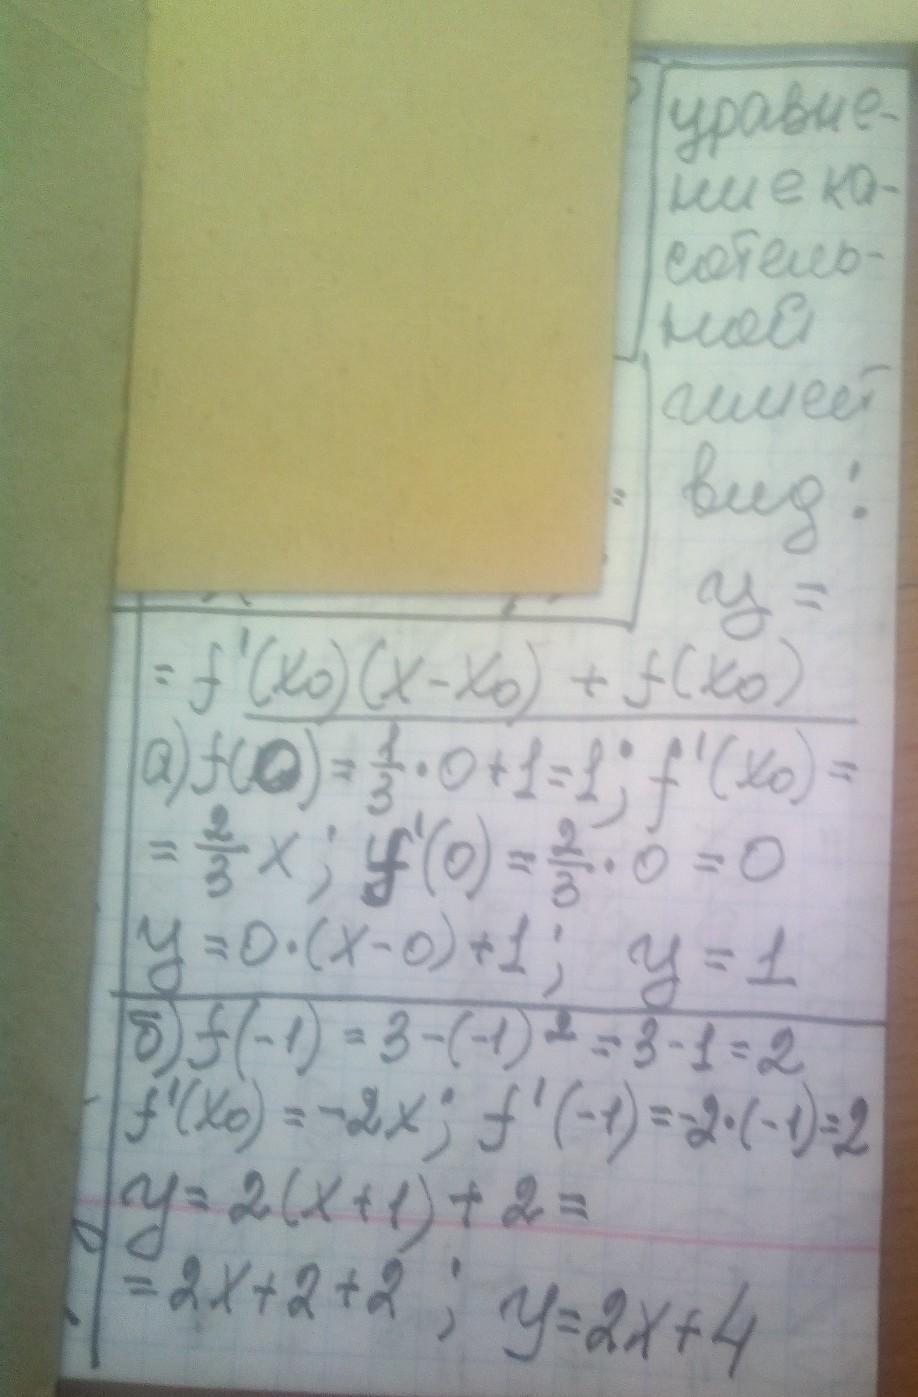 уравне-
ние ка-
сатель-
ной
имеет
вид:
y =
= f'(x₀)(x-x₀) + f(x₀)
а) f(0) = 1/3 · 0 + 1 = 1; f'(x₀) =
= 2/3 x; f'(0) = 2/3 · 0 = 0
y = 0·(x-0)+1; y = 1
б) f(-1) = 3-(-1)² = 3-1 = 2
f'(x₀) = -2x; f'(-1) = -2·(-1) = 2
y = 2(x+1) + 2 =
= 2x+2+2; y = 2x+4